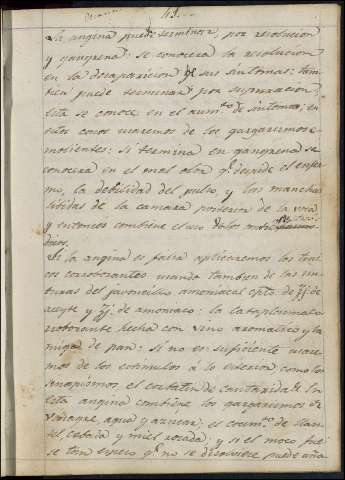 41
La angina puede terminar, por resolucion
y gangrena: se conocera la resolucion
en la desaparicion de sus síntomas: tam
bien puede terminar por supuracion,
esta se conoce en el aum.to de síntomas; en
estos casos usaremos de los gargarismos e
molientes: si termina en gangrena se
conocera en el mal olor q.e despide el enfer
mo, la debilidad del pulso, y las manchas
libidas de la camara posterior de la voca
y entonces combiene el uso de los
Si la angina es falsa aplicaremos los topi
cos corroborantes usando tambien de las un
turas del javoncillo amoniacal cpto. de ℥j. de
aceyte y ʒj. de amoniaco: la cataplasma co
rroborante hecha con vino aromatico y la
miga de pan: si no en suficiente usare
mos de los estimulos á lo exterior como los
sinapismos, el
esta angina combiene los gargarismos de
vinagre, agua y azucar; el cocim.to de llan
tel, cebada y miel rosada, y si el moco fue
se tam espeso q.e no se disolviese puede aña